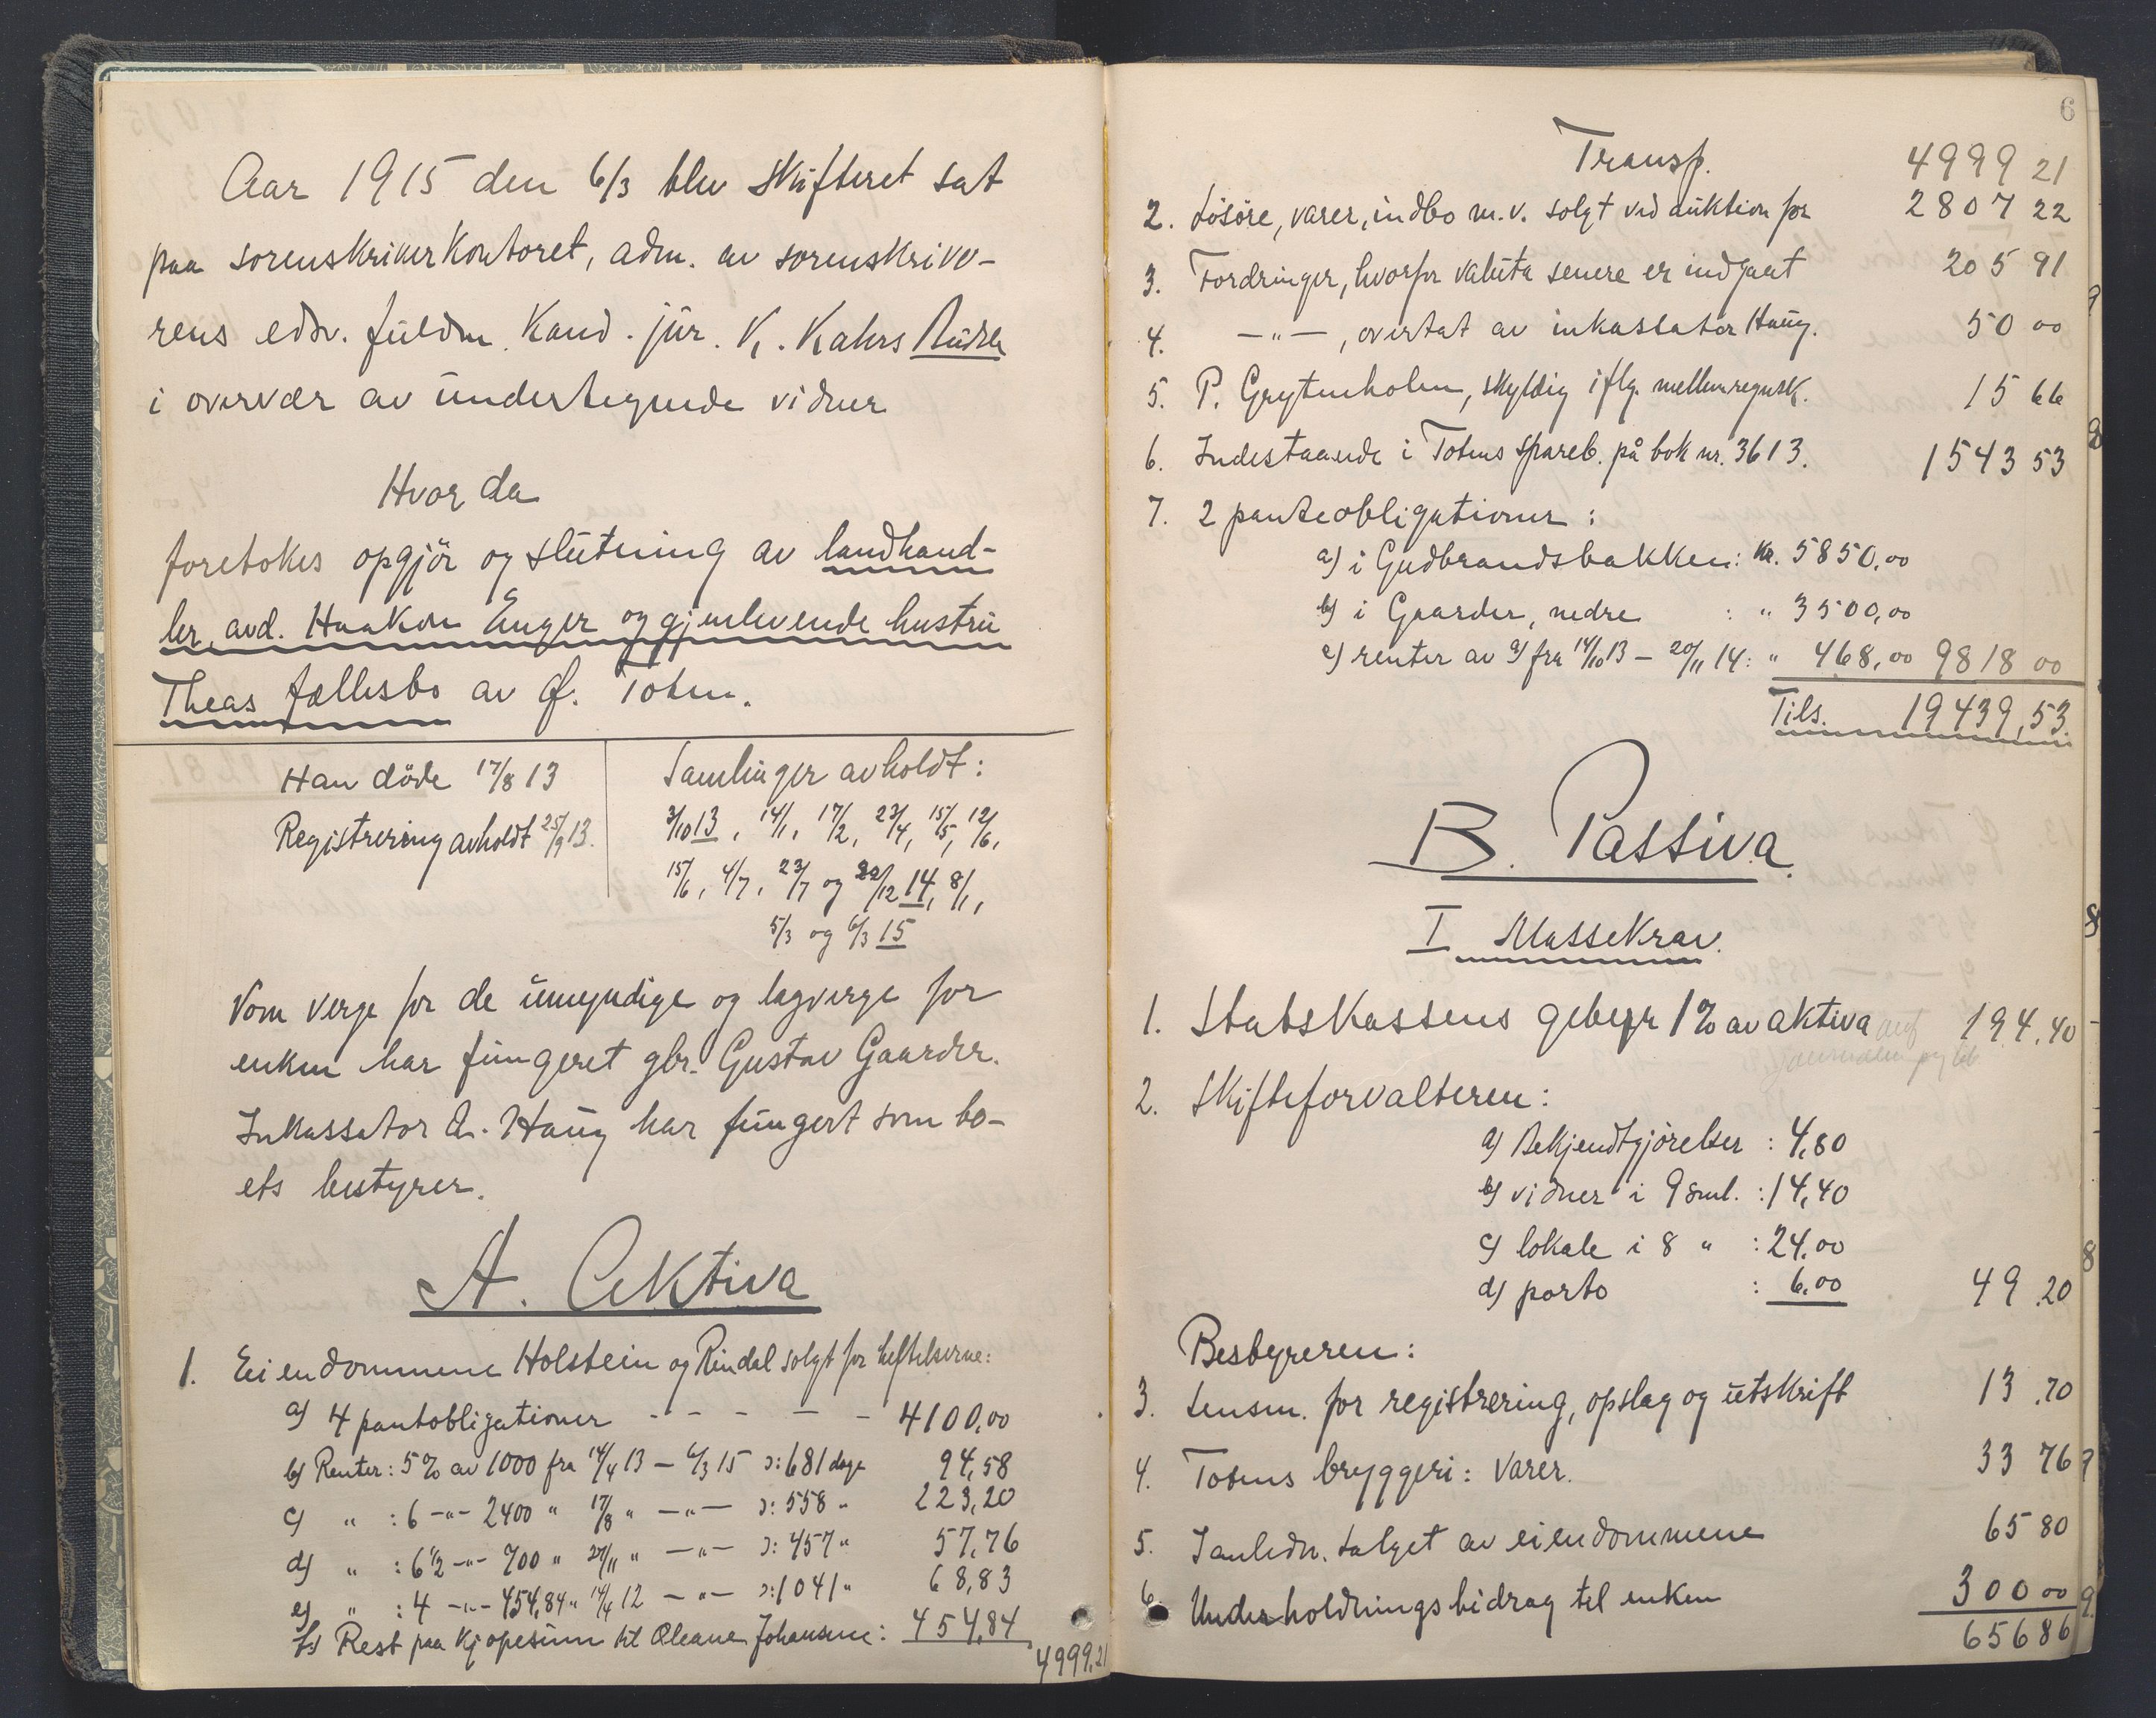 Aar 1915 den 6/3 blev skifteret sat
paa sorenskriverkontoret, adm. av sorenskrive-
rens edsv. fuldm. Kand. jur. K. Kahrs
i overvær av undertegnede vidner
Hvor da
foretokes opgjör og slutning av landhand-
ler, avd. Haakon Enger og gjenlevende hustru
Theas fællesbo av Ø. Toten.
Han döde 17/8 13
Registrering avholdt 25/9 13.
Samlinger avholdt:
3/10 13, 14/1, 17/2, 23/4, 15/5, 12/6,
15/6, 4/7, 23/7 og 22/12 14, 8/1,
5/3 og 6/3 15
Som verge for de umyndige og lagverge for
enken har fungeret gbr. Gustav Gaarder.
Inkassator A. Haug har fungert som bo-
ets bestyrer.
A. Aktiva
1. Eiendommene Holstein og Rindal solgt for heftelserne:
a) 4 pantobligationer - - - - - 4100,00
b) Renter: 5% av 1000 fra 14/4 13 - 6/3 15 ɔ: 681 dage 94,58
c) " : 6 -"- 2400 " 17/8 " -"- ɔ: 558 " 223,20
d) " : 6 1/2 -"- 700 " 27/11 " -"- ɔ: 457 " 57,76
e) " : 4 -"- 454,84 " 14/4 12 -"- ɔ: 1041 " 68,83
f) Rest paa kjøpesum til Oleane Johansen: 454,84
4999,21
6
Transp. 4999 21
2. Lösöre, varer, indbo m.v. solgt ved auktion for 2807 22
3. Fordringer, hvorfor valuta senere er indgaat 205 91
4. -"-, overtat av inkassator Haug. 50 00
5. P. Grytenholm, skyldig iflg. mellemregnsk. 15 66
6. Indestaaende i Totens spareb. på bok nr. 3613. 1543 53
7. 2 panteobligationer:
a) i Gudbrandsbakken: Kr. 5850,00
b) i Gaarder, nedre : " 3500,00
c) renter av a) fra 14/10 13 - 20/11 14: " 468,00 9818 00
Tils. 19439,53
B. Passiva.
I Massekrav.
1. Statskassens gebyr 1% av aktiva 194.40
2. Skifteforvalteren:
a) Bekjendtgjørelser : 4,80
b) vidner i 9 saml. : 14,40
c) lokale i 8 " : 24,00
d) porto : 6,00 49.20
Bestyreren:
3. Lensm. for registrering, opslag og utskrift 13.70
4. Totens bryggeri: varer. 33 76
5. I anledn. salget av eiendommene 65 80
6. Underholdningsbidrag til enken 300 00
656 86